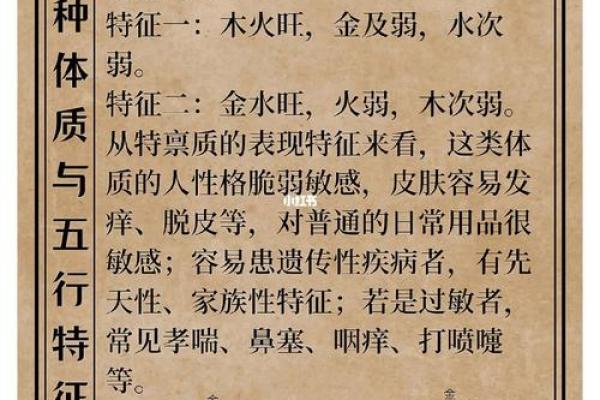 种体质与五行特征
特征一：木火旺，金及弱，水次
弱。
特征二：金水旺，火弱，木次弱。
从特禀质的表现特征来看，这类体
质的人性格脆弱敏感，皮肤容易发
痒、脱皮等，对普通的日常用品很
敏感；容易患遗传性疾病者，有先
天性、家族性特征；若是过敏者，
常见孝喘、鼻塞、咽痒、打喷嚏
等。
小红书